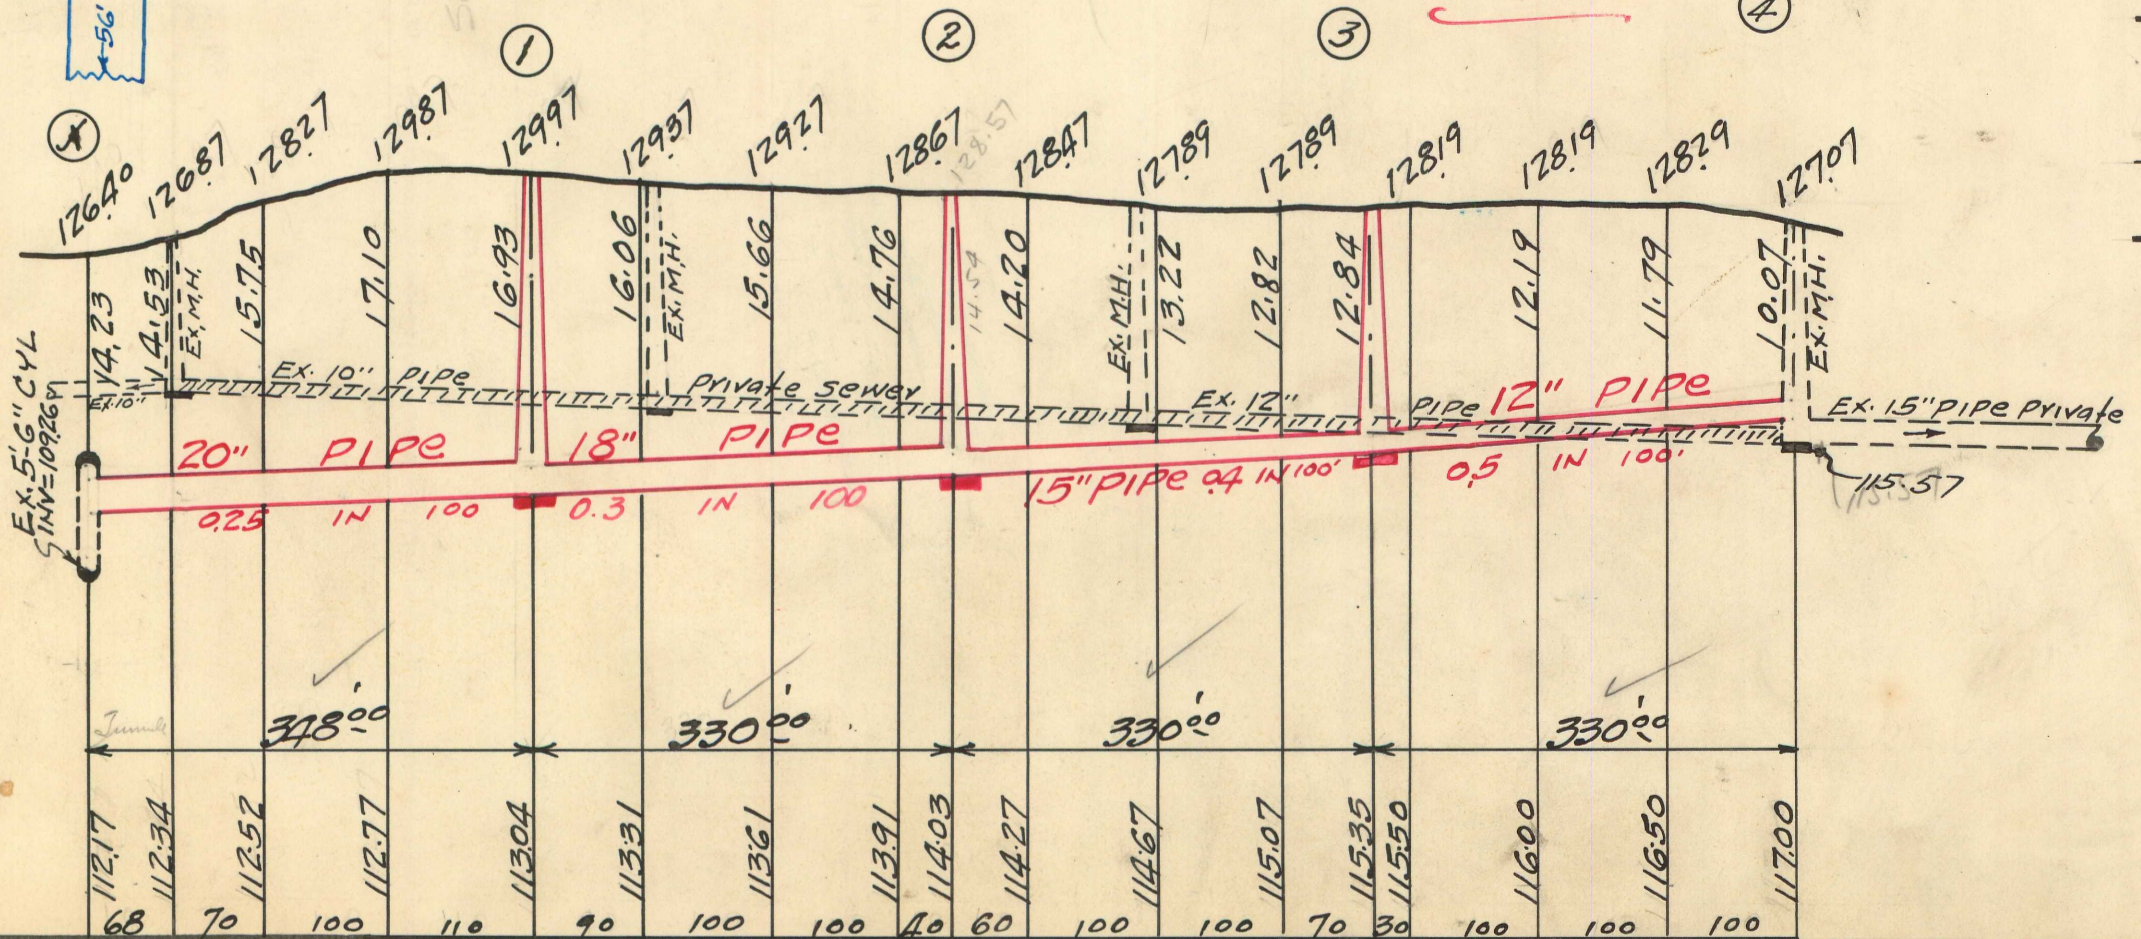 56'
1
2
3
4
A
126.40
126.87
128.27
129.87
129.97
129.37
129.27
128.67
128.57
128.47
127.89
127.89
128.19
128.19
128.29
127.07
14.23
14.53
EX. M.H.
15.75
17.10
16.93
16.06
EX. M.H.
15.66
14.76
14.54
14.20
EX. M.H.
13.22
12.82
12.84
12.19
11.79
10.07
EX. M.H.
Ex. 5'-6" CYL
INV=109.26
Ex 10"
Ex. 10" PIPe
Private sewer
Ex. 12"
PIPe
Ex. 15" PIPe Private
20" PIPe
18" PIPe
15" PIPe 0.4 IN 100'
12" PIPe
0.25 IN 100
0.3 IN 100
0.5 IN 100'
115.57
115.57
348.00'
330.00'
330.00'
330.00'
112.17
112.34
112.52
112.77
113.04
113.31
113.61
113.91
114.03
114.27
114.67
115.07
115.35
115.50
116.00
116.50
117.00
68 70 100 110 90 100 100 40 60 100 100 70 30 100 100 100